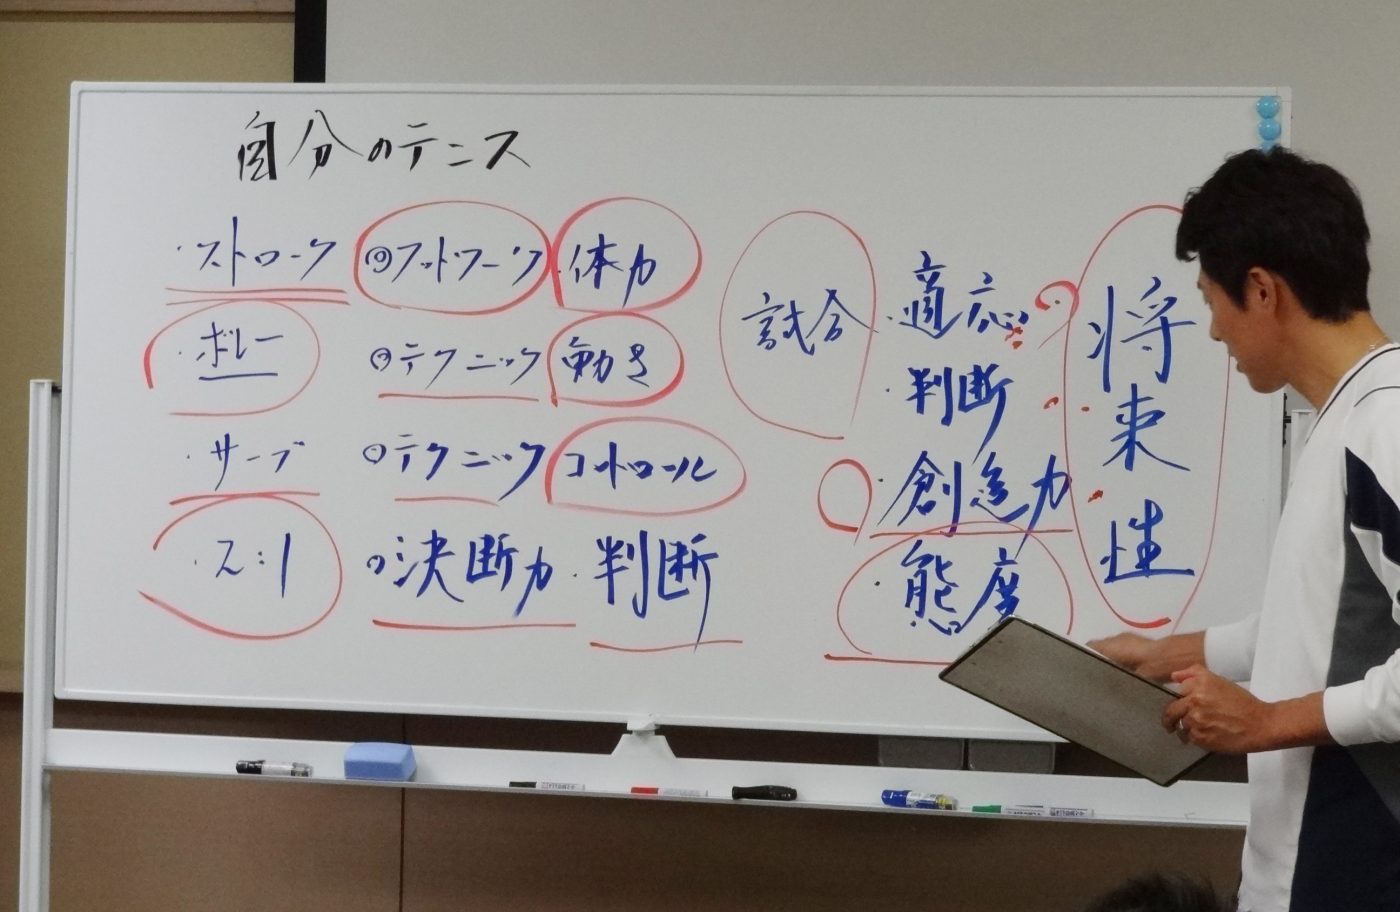 自分のテニス
・ストローク ◎フットワーク ・体力
・ボレー ◎テクニック 動き
・サーブ ○テクニック コントロール
・ス:1 ○決断力 ・判断
試合
・適応
・判断
・創造力
・態度
将来性